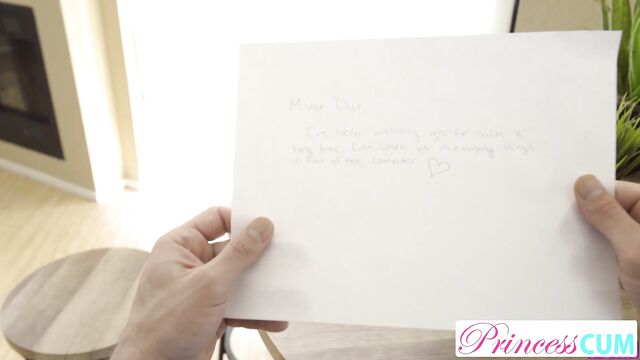 Mister Dur,
I've been watching you for such a
long time. Even when you do naughty things
in front of the computer ♡
PrincessCUM